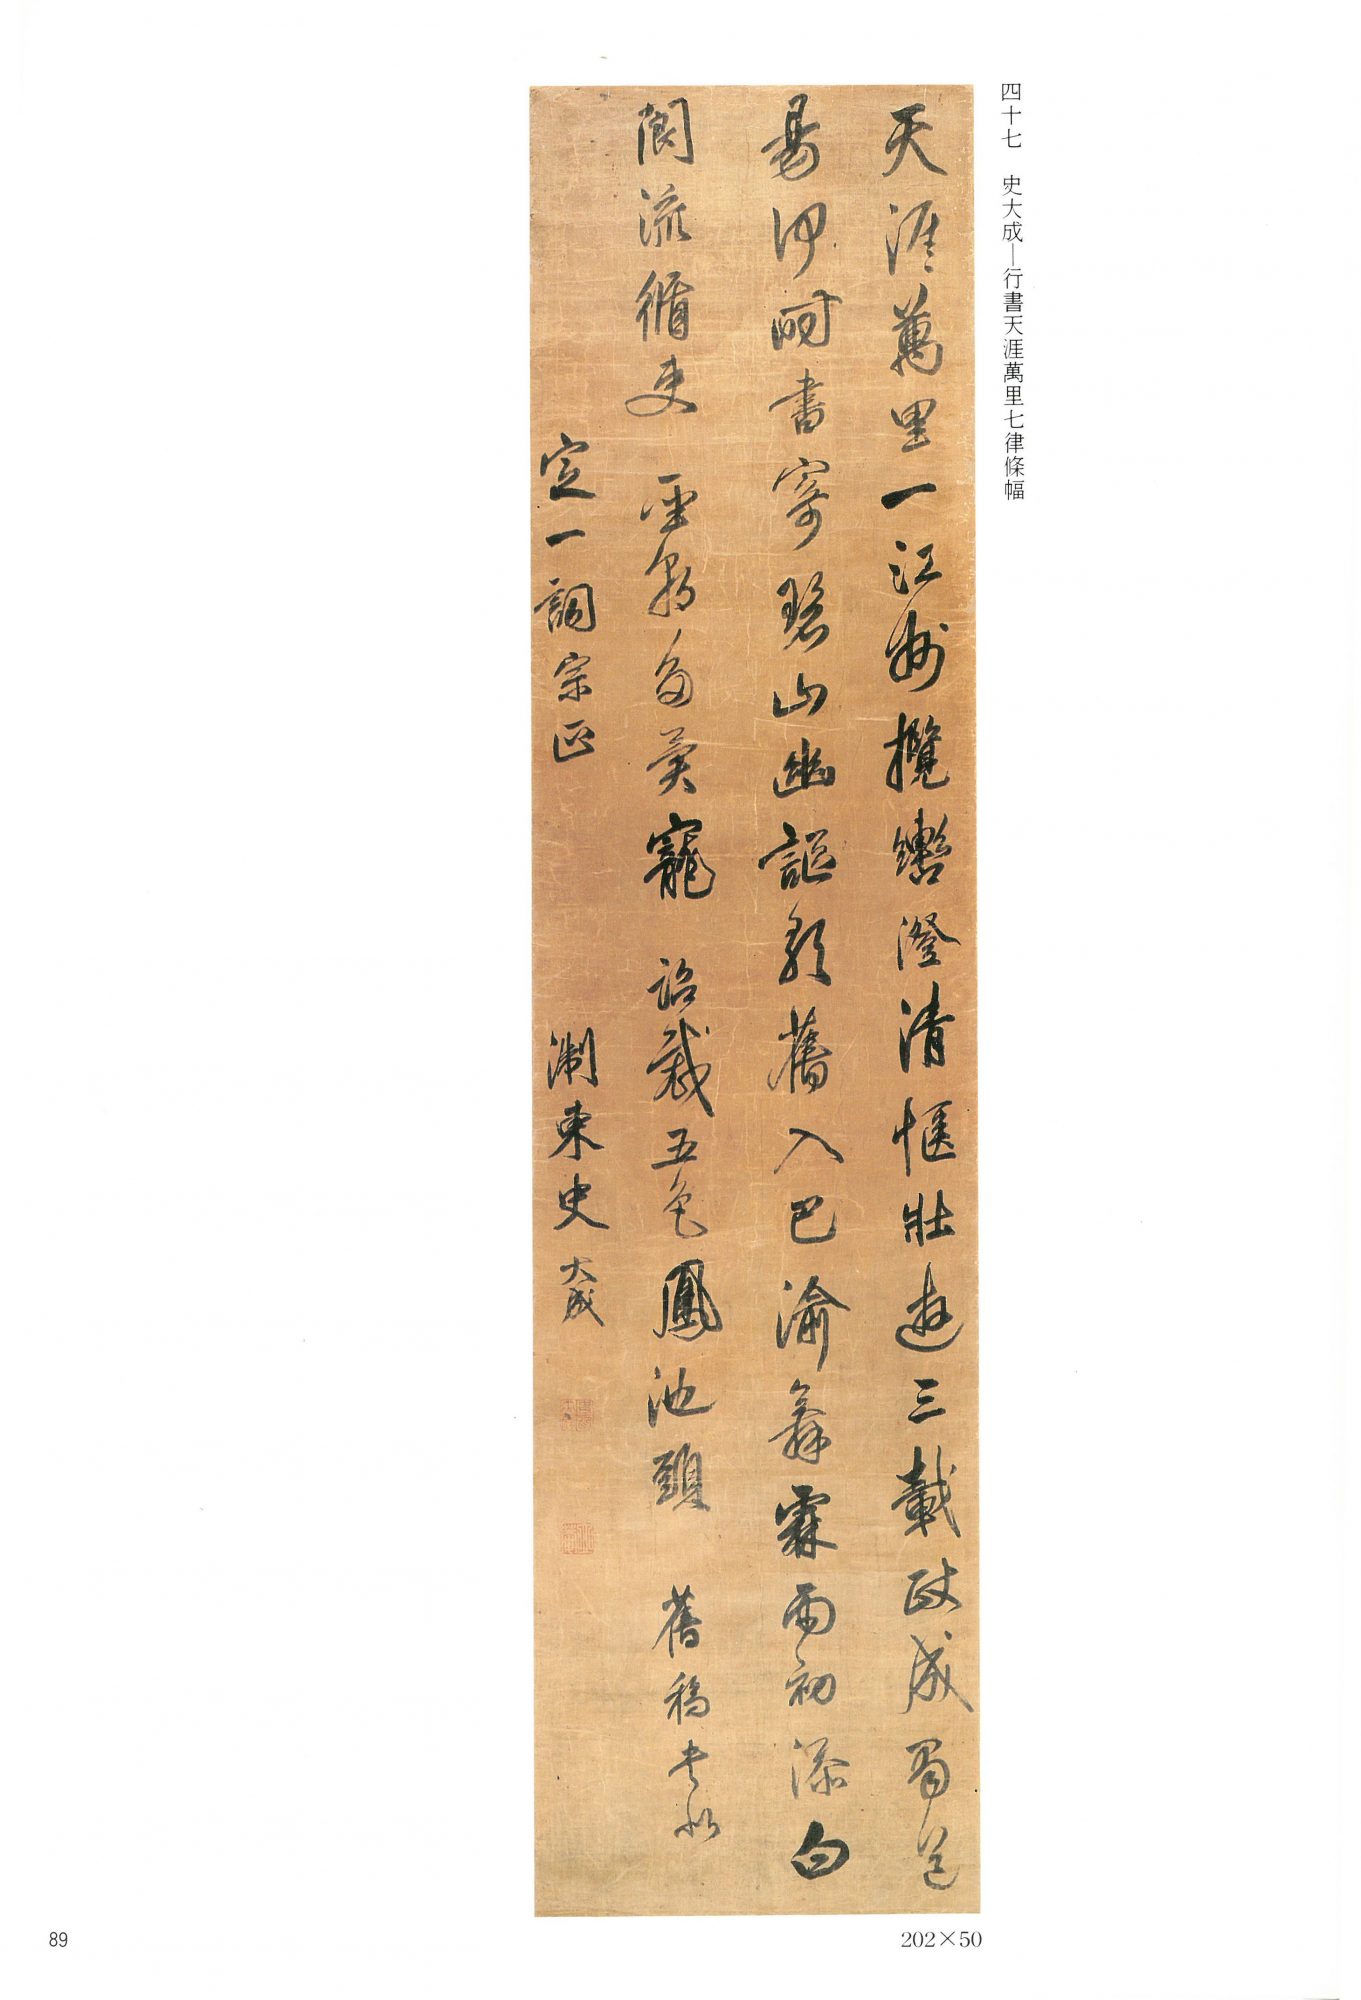 四十七　史大成—行書天涯萬里七律條幅
天涯萬里一江州攬轡澄清愜壯遊三載政成蜀道
易何時書寄碧山幽謳歌舊入巴渝舞霖雨初添白
閬流循吏　聖朝多異寵　詔裁五色鳳池頭　舊稿書似
定一詞宗正　淛東史大成
202×50
89